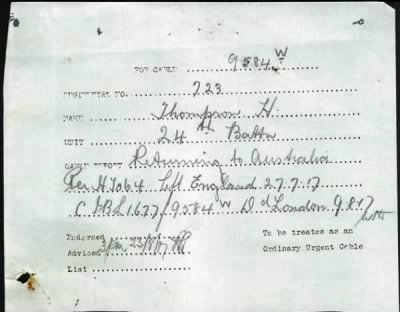 FOR CABLE 9584 W
REGIMENTAL NO. 723
NAME Thompson H.
UNIT 24th Battn
CABLE REPORT Returning to Australia
Per H.T. 064 Left England 27.7.17
C 1677/9584 W D d London 9.8.17
Endorsed
Advised 23/8/17
List
To be treated as an
Ordinary Urgent Cable